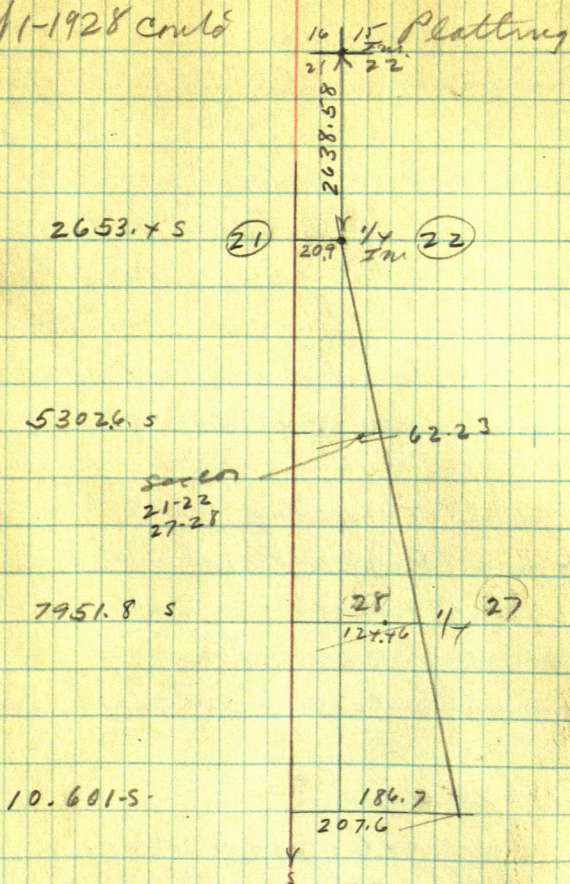 1-1928 Cont'd
Plotting
16 15
Im.
21 22
2638.58
2653.4 S
21
20.9
1/4
Im
22
5302.6. S
62.23
Sec Cor
21-22
27-28
7951.8 S
28
27
124.46
1/4
10.601-S.
186.7
207.6
S